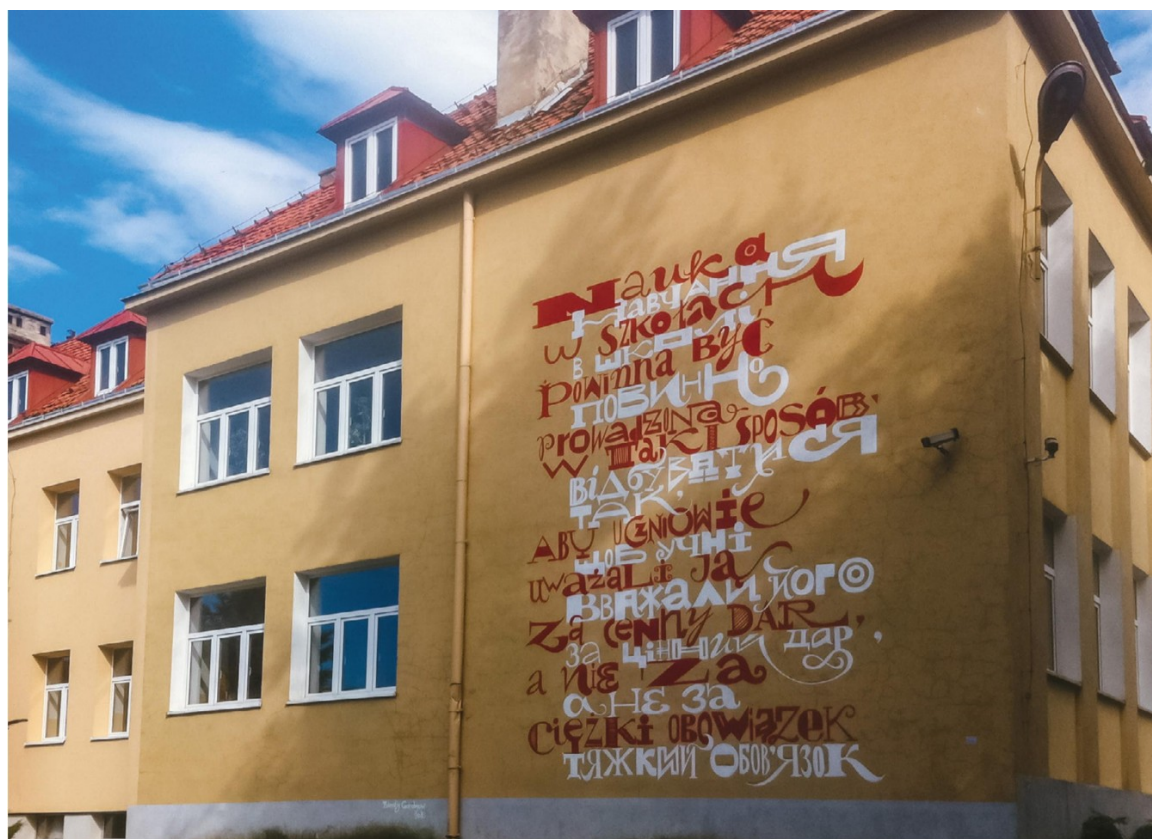 Nauka
Навчання
w szkołach
в школі
powinna być
повинно
prowadzona
w taki sposób,
відбуватися
так,
aby uczniowie
щоб учні
uważali ją
вважали його
za cenny dar,
за цінний дар,
a nie za
а не за
ciężki obowiązek
тяжкий обов'язок